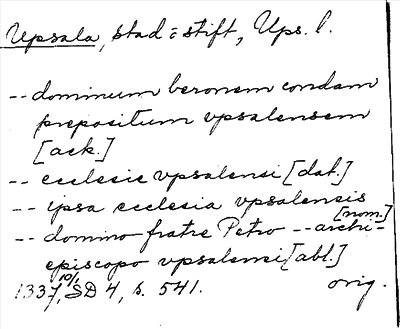 Upsala, stad = stift, Ups. l.
-- dominum beronem condam
prepositum vpsalensem
[ack.]
-- ecclesie vpsalensi [dat.]
-- ipsa ecclesia vpsalensis
[nom.]
-- domino fratre Petro -- archi-
episcopo vpsalensi [abl.]
1337 10/1, SD 4, s. 541. orig.